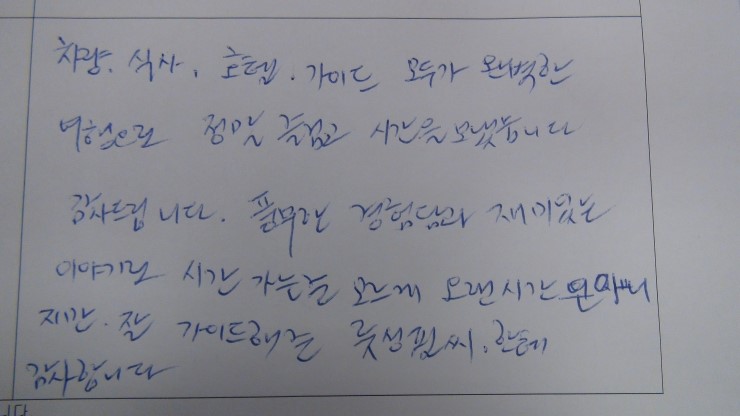 차량. 식사. 호텔. 가이드 모두가 완벽한
여행으로 정말 즐겁고 시간을 보냈습니다
감사드립니다. 풍부한 경험담과 재미있는
이야기로 시간 가는줄 모르게 오랜시간
잘 가이드해준 씨. 한테
감사합니다